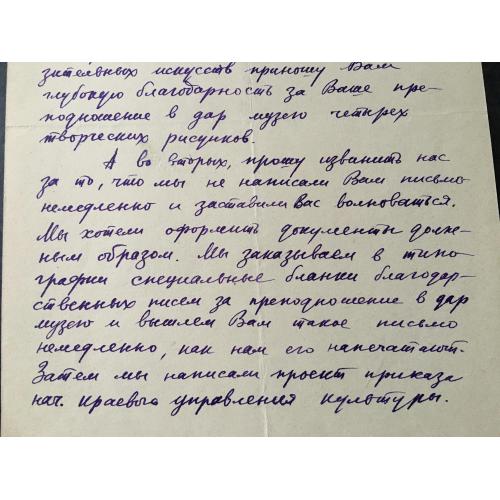 зительных искусств приношу Вам
глубокую благодарность за Ваше пре-
подношение в дар музею четырех
творческих рисунков.
А во вторых, прошу извинить нас
за то, что мы не написали Вам письмо
немедленно и заставили Вас волноваться.
Мы хотели оформить документы долж-
ным образом. Мы заказываем в типо-
графии специальные бланки благодар-
ственных писем за преподношение в дар
музею и вышлем Вам такое письмо
немедленно, как нам его напечатают.
Затем мы написали проект приказа
нач. краевого управления культуры.